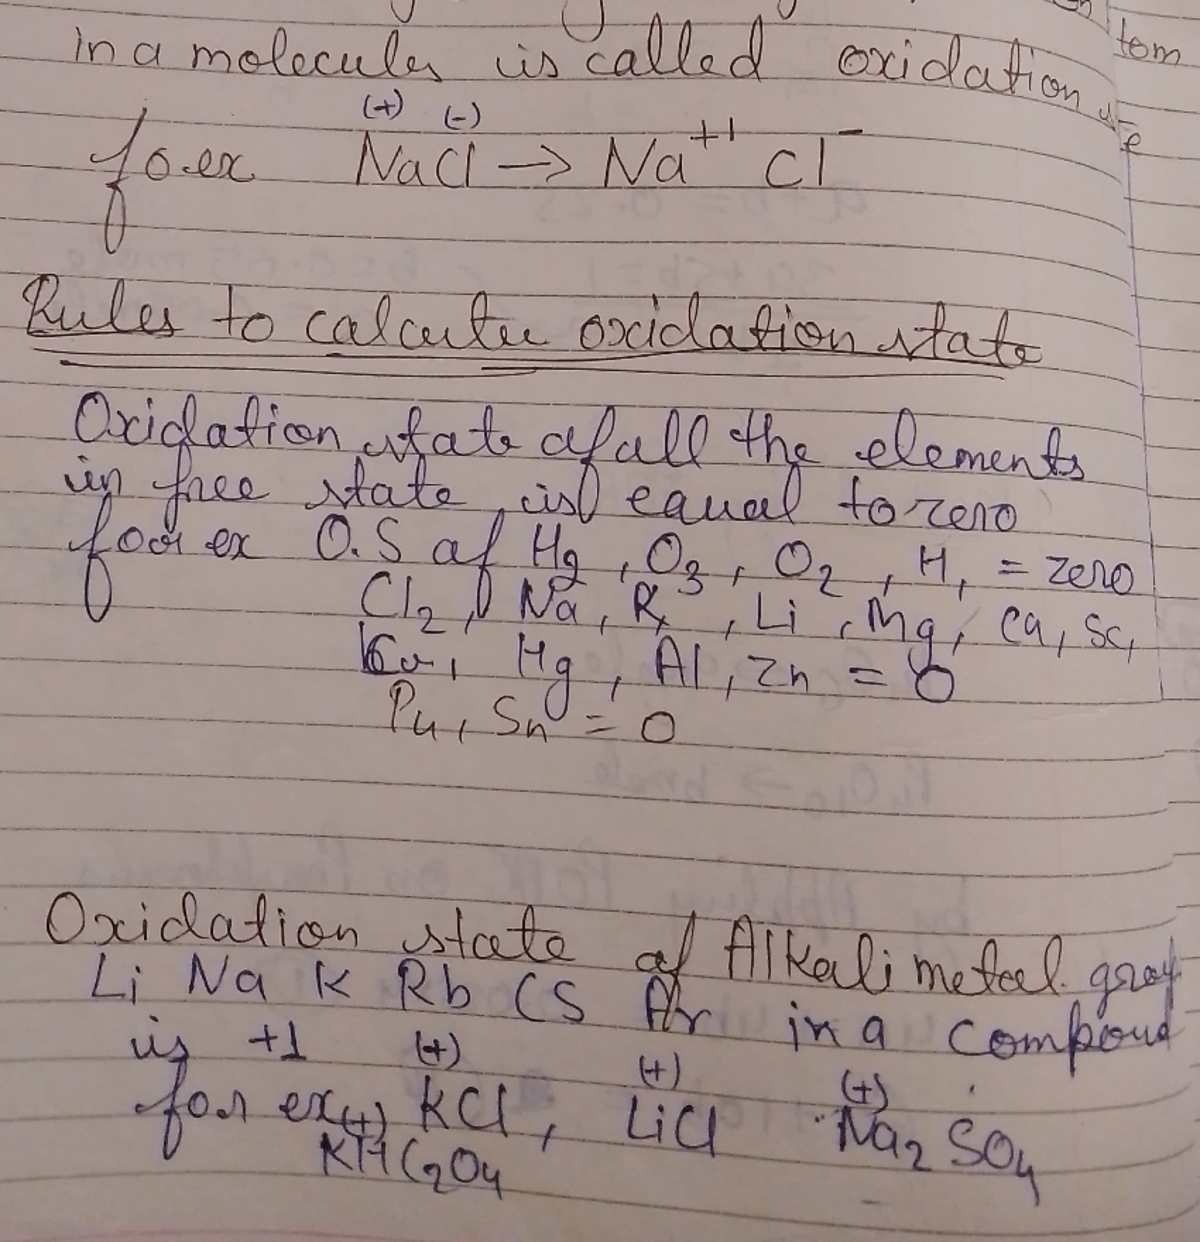 tom
in a molecules is called oxidation
(+) (-)
fo.ex NaCl → Na⁺¹ Cl⁻
Rules to calcutee oxidation state
Oxidation state of all the elements
in free state is equal to zero
foor ex O.S of Hg, O₃, O₂, H, = zero
Cl₂, Na, K, Li, Mg, Ca, Sc,
Hg, Al, Zn = 0
Pu, Sn = 0
Oxidation state of Alkali metal
Li Na K Rb CS in a compound
is +1 (+) (+) (+)
for ex KCl, LiCl Na₂SO₄
(+)
KHC₂O₄